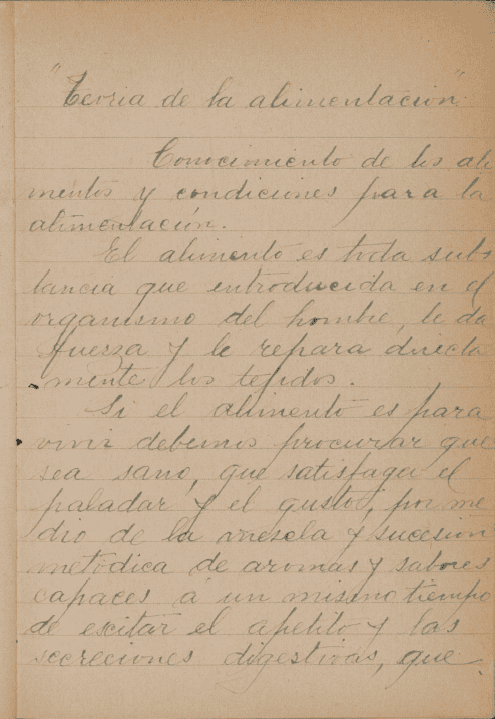 "Teoria de la alimentación"
Conocimiento de los ali
mentos y condiciones para la
alimentación.
El alimento es toda subs
tancia que introducida en el
organismo del hombre, le da
fuerza y le repara directa
mente los tejidos.
Si el alimento es para
vivir debemos procurar que
sea sano, que satisfaga el
paladar y el gusto, por me
dio de la mezcla y sucesión
metodica de aromas y sabores
capaces á un mismo tiempo
de excitar el apetito y las
secreciones digestivas, que